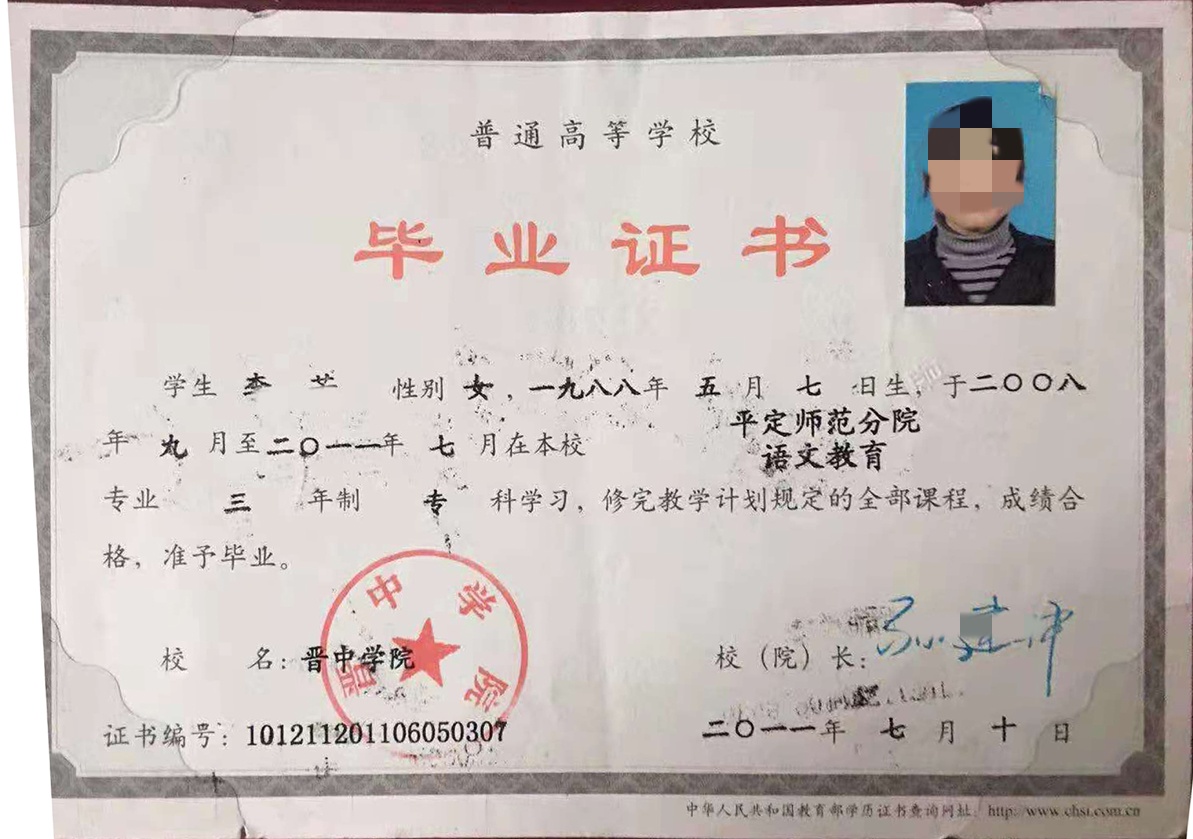 普通高等学校
毕业证书
学生 李 性别 女，一九八八年 五 月 七 日生，于二〇〇八
年 九 月至二〇一一年 七 月在本校 平定师范分院
语文教育
专业 三 年制 专 科学习，修完教学计划规定的全部课程，成绩合
格，准予毕业。
晋中学院
校 名：晋中学院
校（院）长：
证书编号：101211201106050307
二〇一一年 七 月 十 日
中华人民共和国教育部学历证书查询网址：http://www.chsi.com.cn